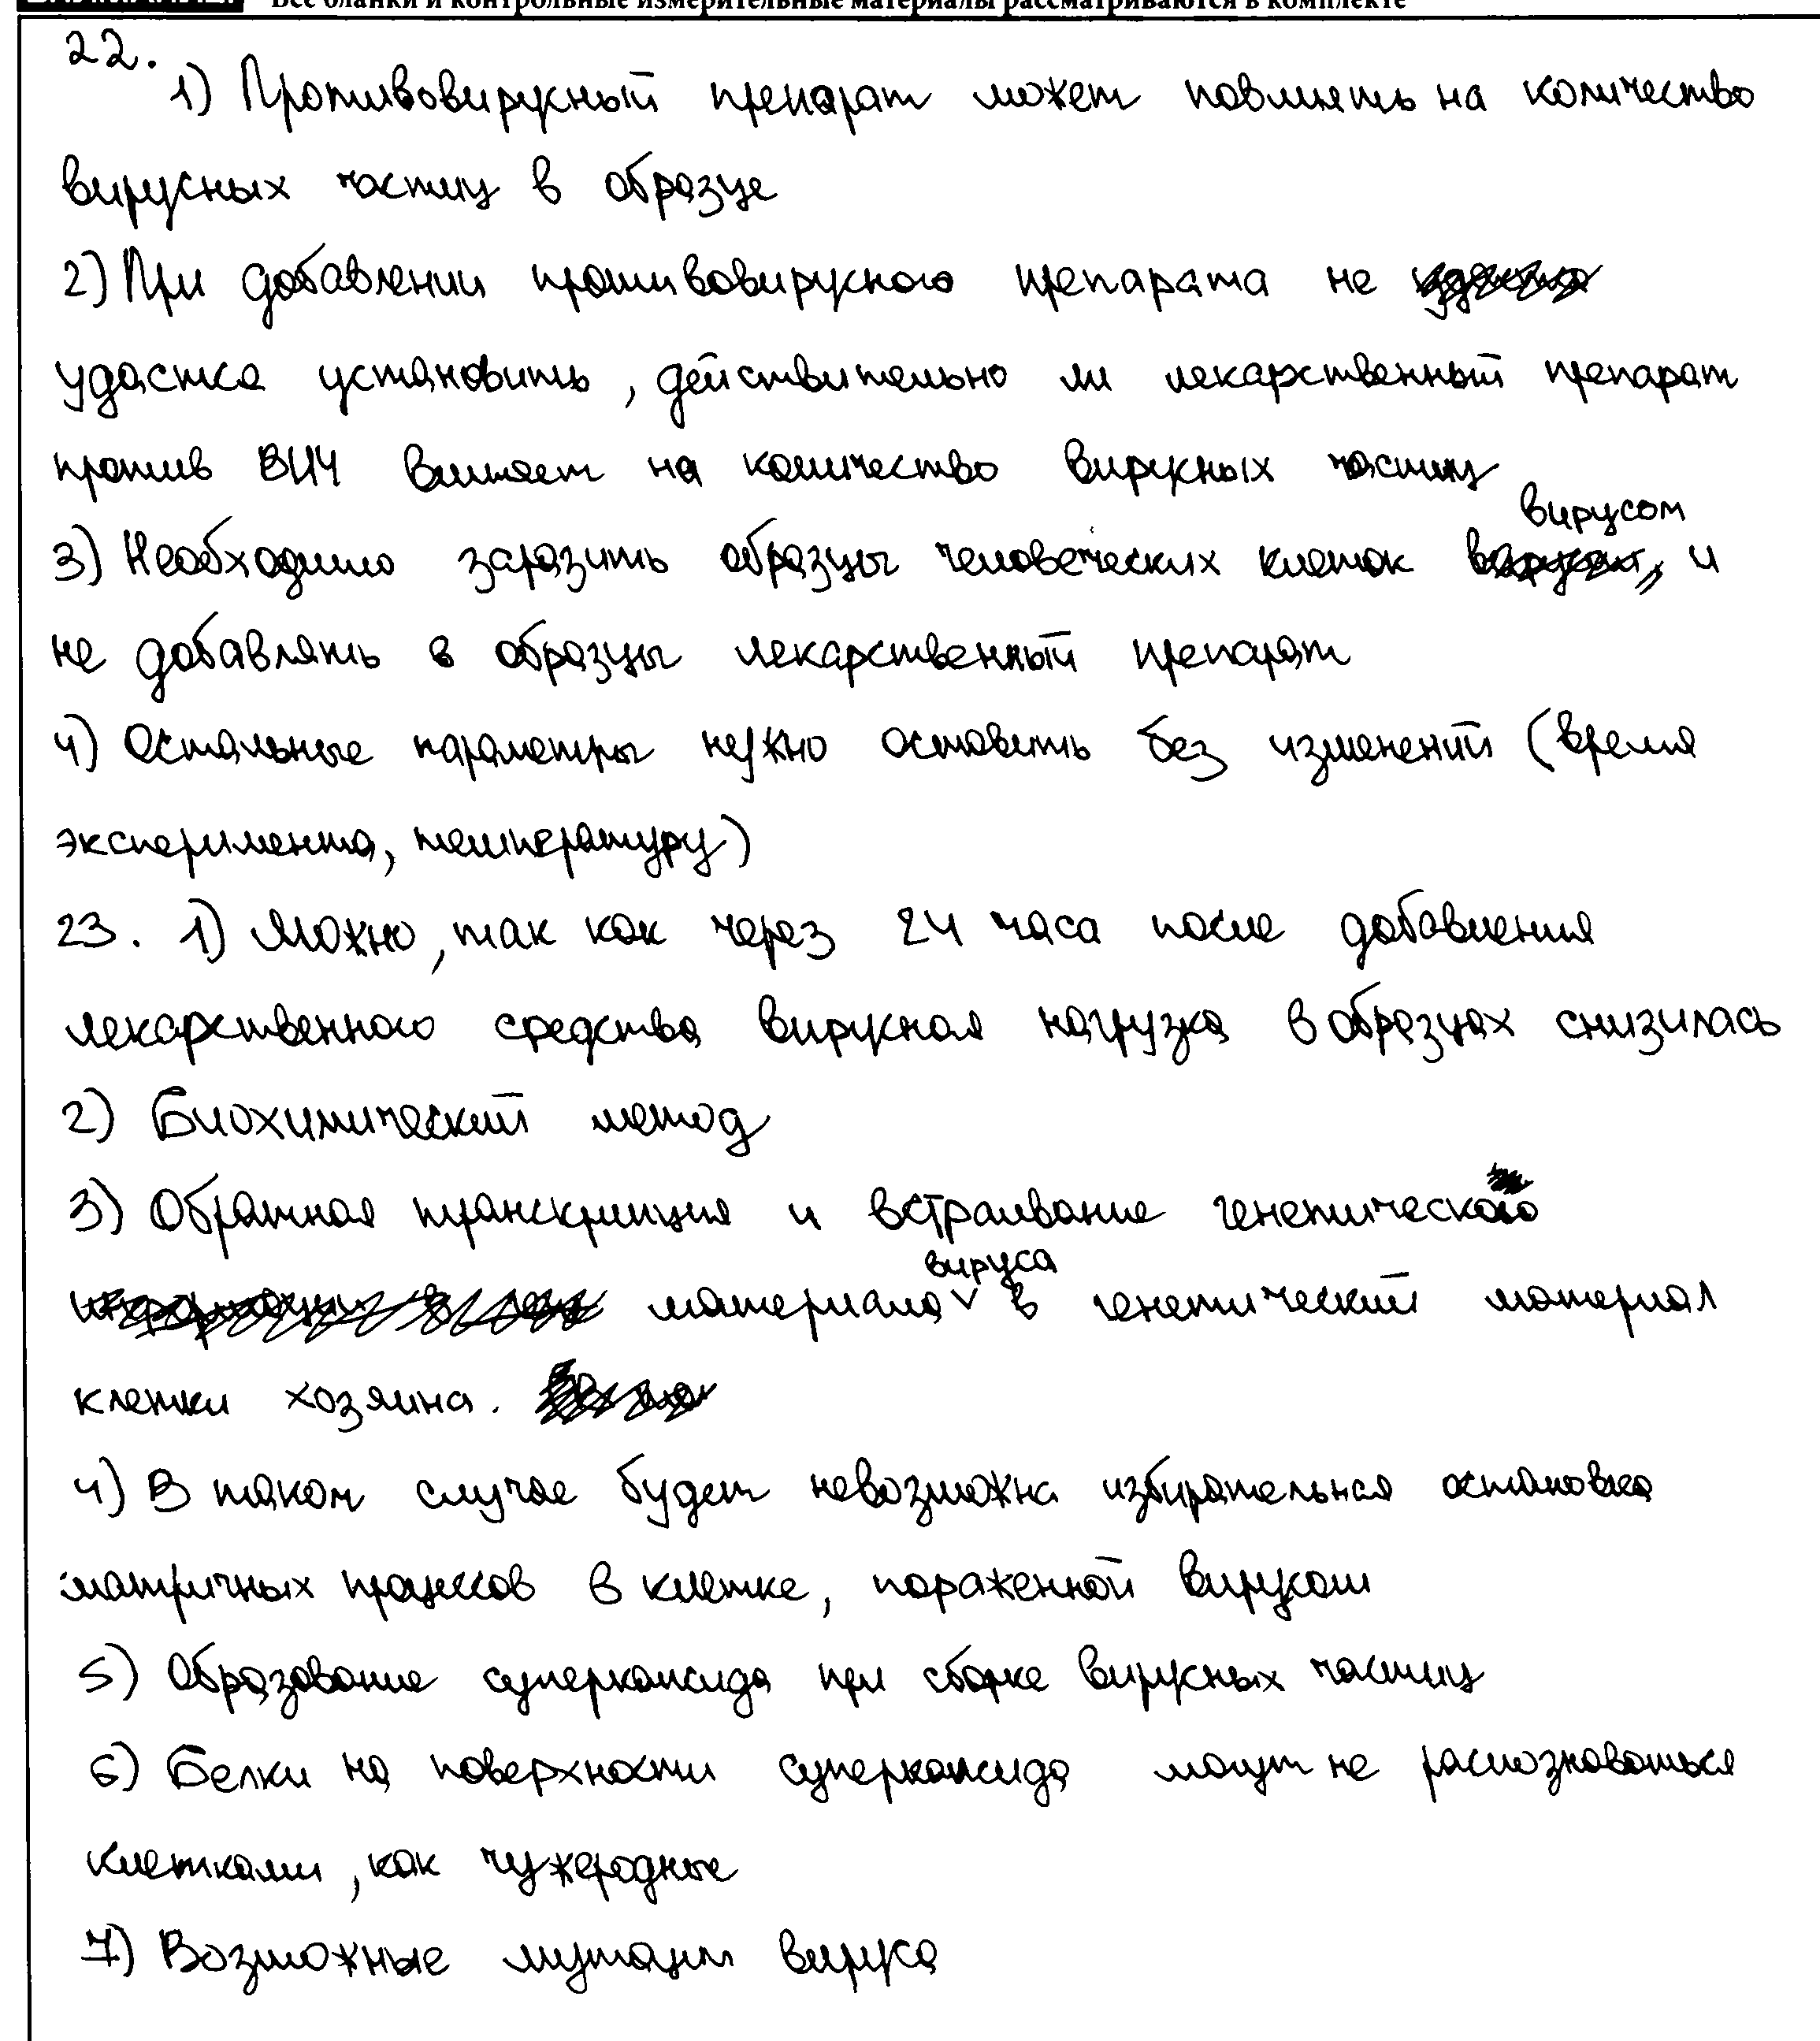 Все бланки и контрольные измерительные материалы рассматриваются в комплекте
22.
1) Противовирусный препарат может повлиять на количество
вирусных частиц в образце
2) При добавлении противовирусного препарата не
удастся установить, действительно ли лекарственный препарат
против ВИЧ влияет на количество вирусных частиц
3) Необходимо заразить образцы человеческих клеток вирусом и
не добавлять в образцы лекарственный препарат
4) Остальные параметры нужно оставить без изменений (время
эксперимента, температуру)
23. 1) Можно, так как через 24 часа после добавления
лекарственного средства вирусная нагрузка в образцах снизилась
2) Биохимический метод
3) Обратная транскрипция и встраивание генетического
материала вируса в генетический материал
клетки хозяина.
4) В таком случае будет невозможна избирательная остановка
матричных процессов в клетке, пораженной вирусом
5) Образование суперкапсида при сборке вирусных частиц
6) Белки на поверхности суперкапсида могут не распознаваться
клетками, как чужеродные
7) Возможные мутации вируса